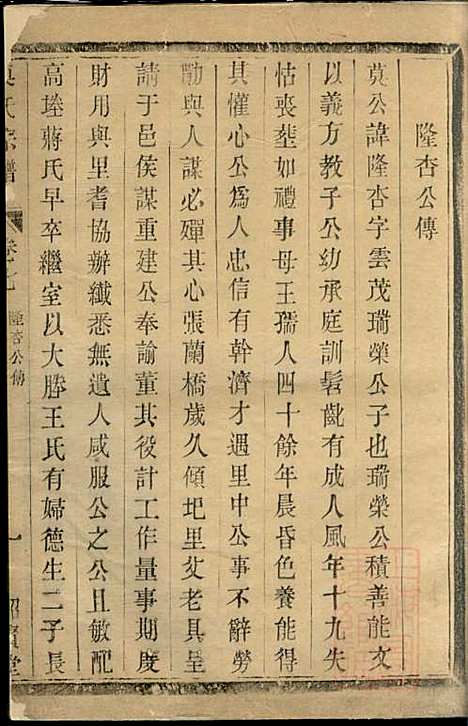 隆杏公傳
莫公諱隆杏字雲茂瑞榮公子也瑞榮公積善能文
以義方教子公幼承庭訓髫齔有成人風年十九失
怙喪塟如禮事母王孺人四十餘年晨昏色養能得
其懽心公為人忠信有幹濟才遇里中公事不辭勞
勩與人謀必殫其心張蘭橋歲久傾圯里父老具呈
請于邑侯謀重建公奉諭董其役計工作量事期度
財用與里耆協辦纖悉無遺人咸服公之公且敏配
高墘蔣氏早卒繼室以大勝王氏有婦德生二子長
氏宗譜 卷七 隆杏公傳 堂